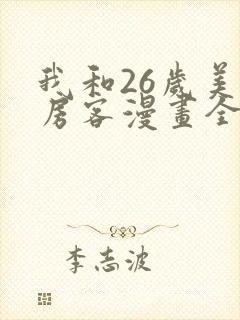 我和26歲美
房客漫畫全
李志波